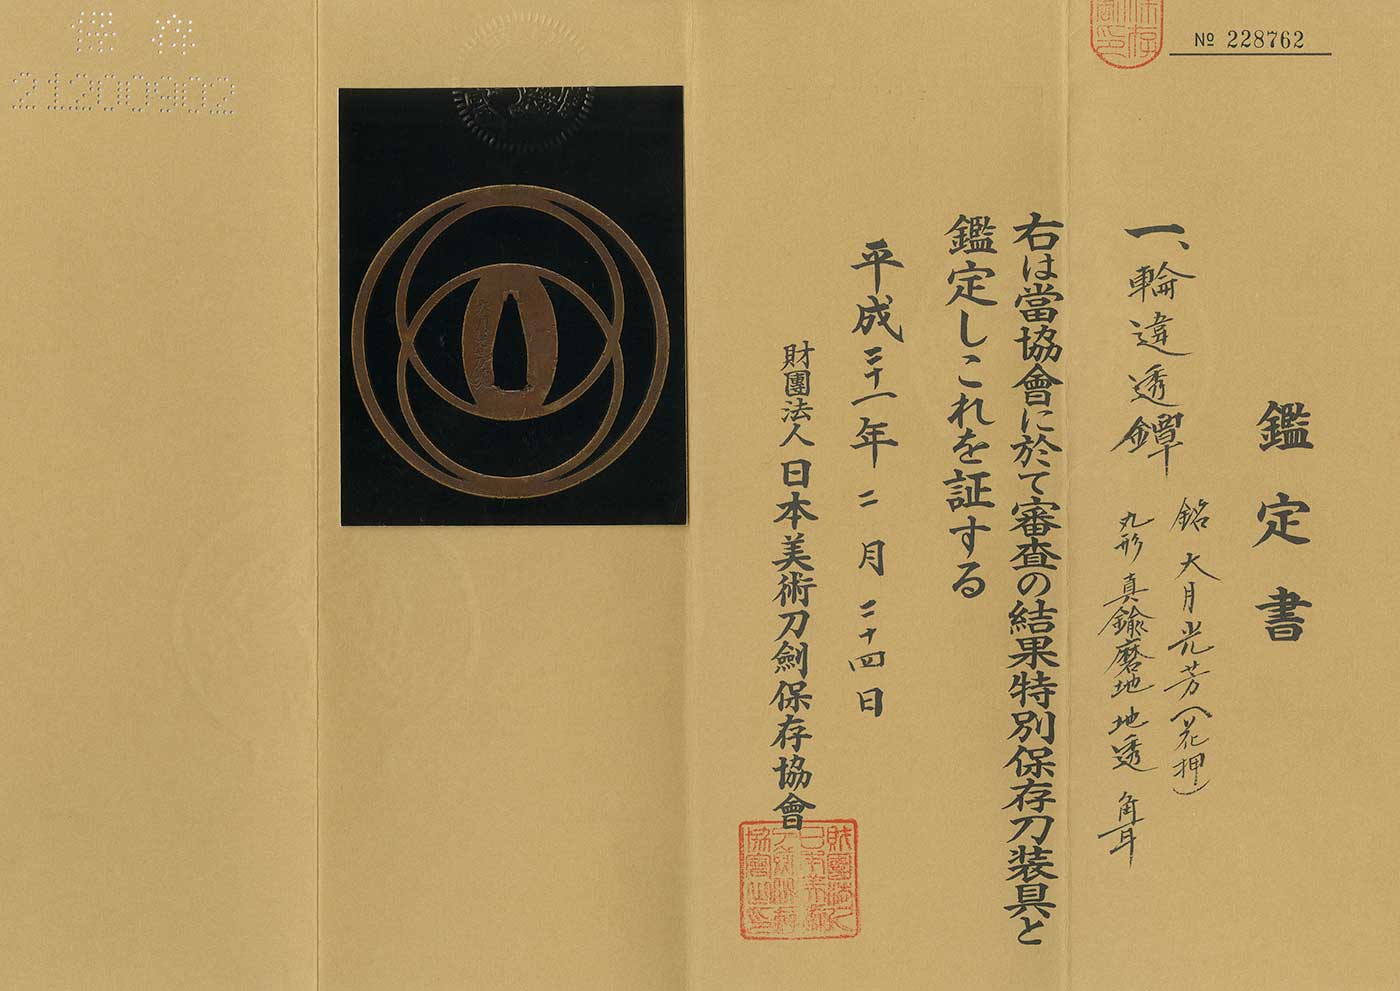 № 228762
鑑定書
一、輪違透鐔
銘 大月光芳(花押)
丸形 真鍮磨地 地透 角耳
右は當協會に於て審査の結果特別保存刀装具と
鑑定しこれを証する
平成二十一年二月二十四日
財團法人 日本美術刀劍保存協會
保存
21200902